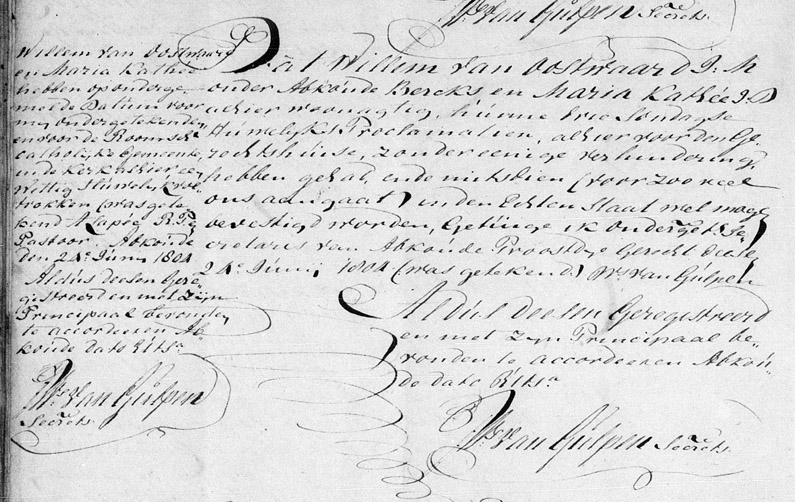 Ws. van Gulpen Secrets.
Willem van Oostwaard
en Maria Kathée
hebben op onderge-
melde Datum voor
my ondergetekende
en voor de Roomsch
catholyke Gemeente
in de kerk alhier een
Wettig Huwelyk vol-
trokken (was gete-
kend A Lapée R. P.
Pastoor. Abkoude
den 24e. Juny 1804
Aldus deesen Gere-
gistreerd en met zyn
Principaal bevonden
te accorderen Ab-
koude dato Uts.a
Ws. van Gulpen
Secrets.
Dat Willem van Oostwaard J. M
onder Abkoude Bercks en Maria Kathée J. D
alhier woonagtig, hunne drie Sondagse
Huwelyks Proclamatien, alhier voor den Ge-
rechtshuise, zonder eenige verhindering
hebben gehad, ende mitsdien (voor zoo veel
ons aangaat) in den Echten Staat wel moge
bevestigd worden, Getuige ik onderget: Se-
cretaris van Abkoude Proostdye Gerecht deese
24e. Juny 1804 (was getekend) Ws. van Gulpen
Aldus deesen Geregistreerd
en met zyn Principaal be-
vonden te accordeeren Abkou-
de dato Uts.a
Ws. van Gulpen Secrets.